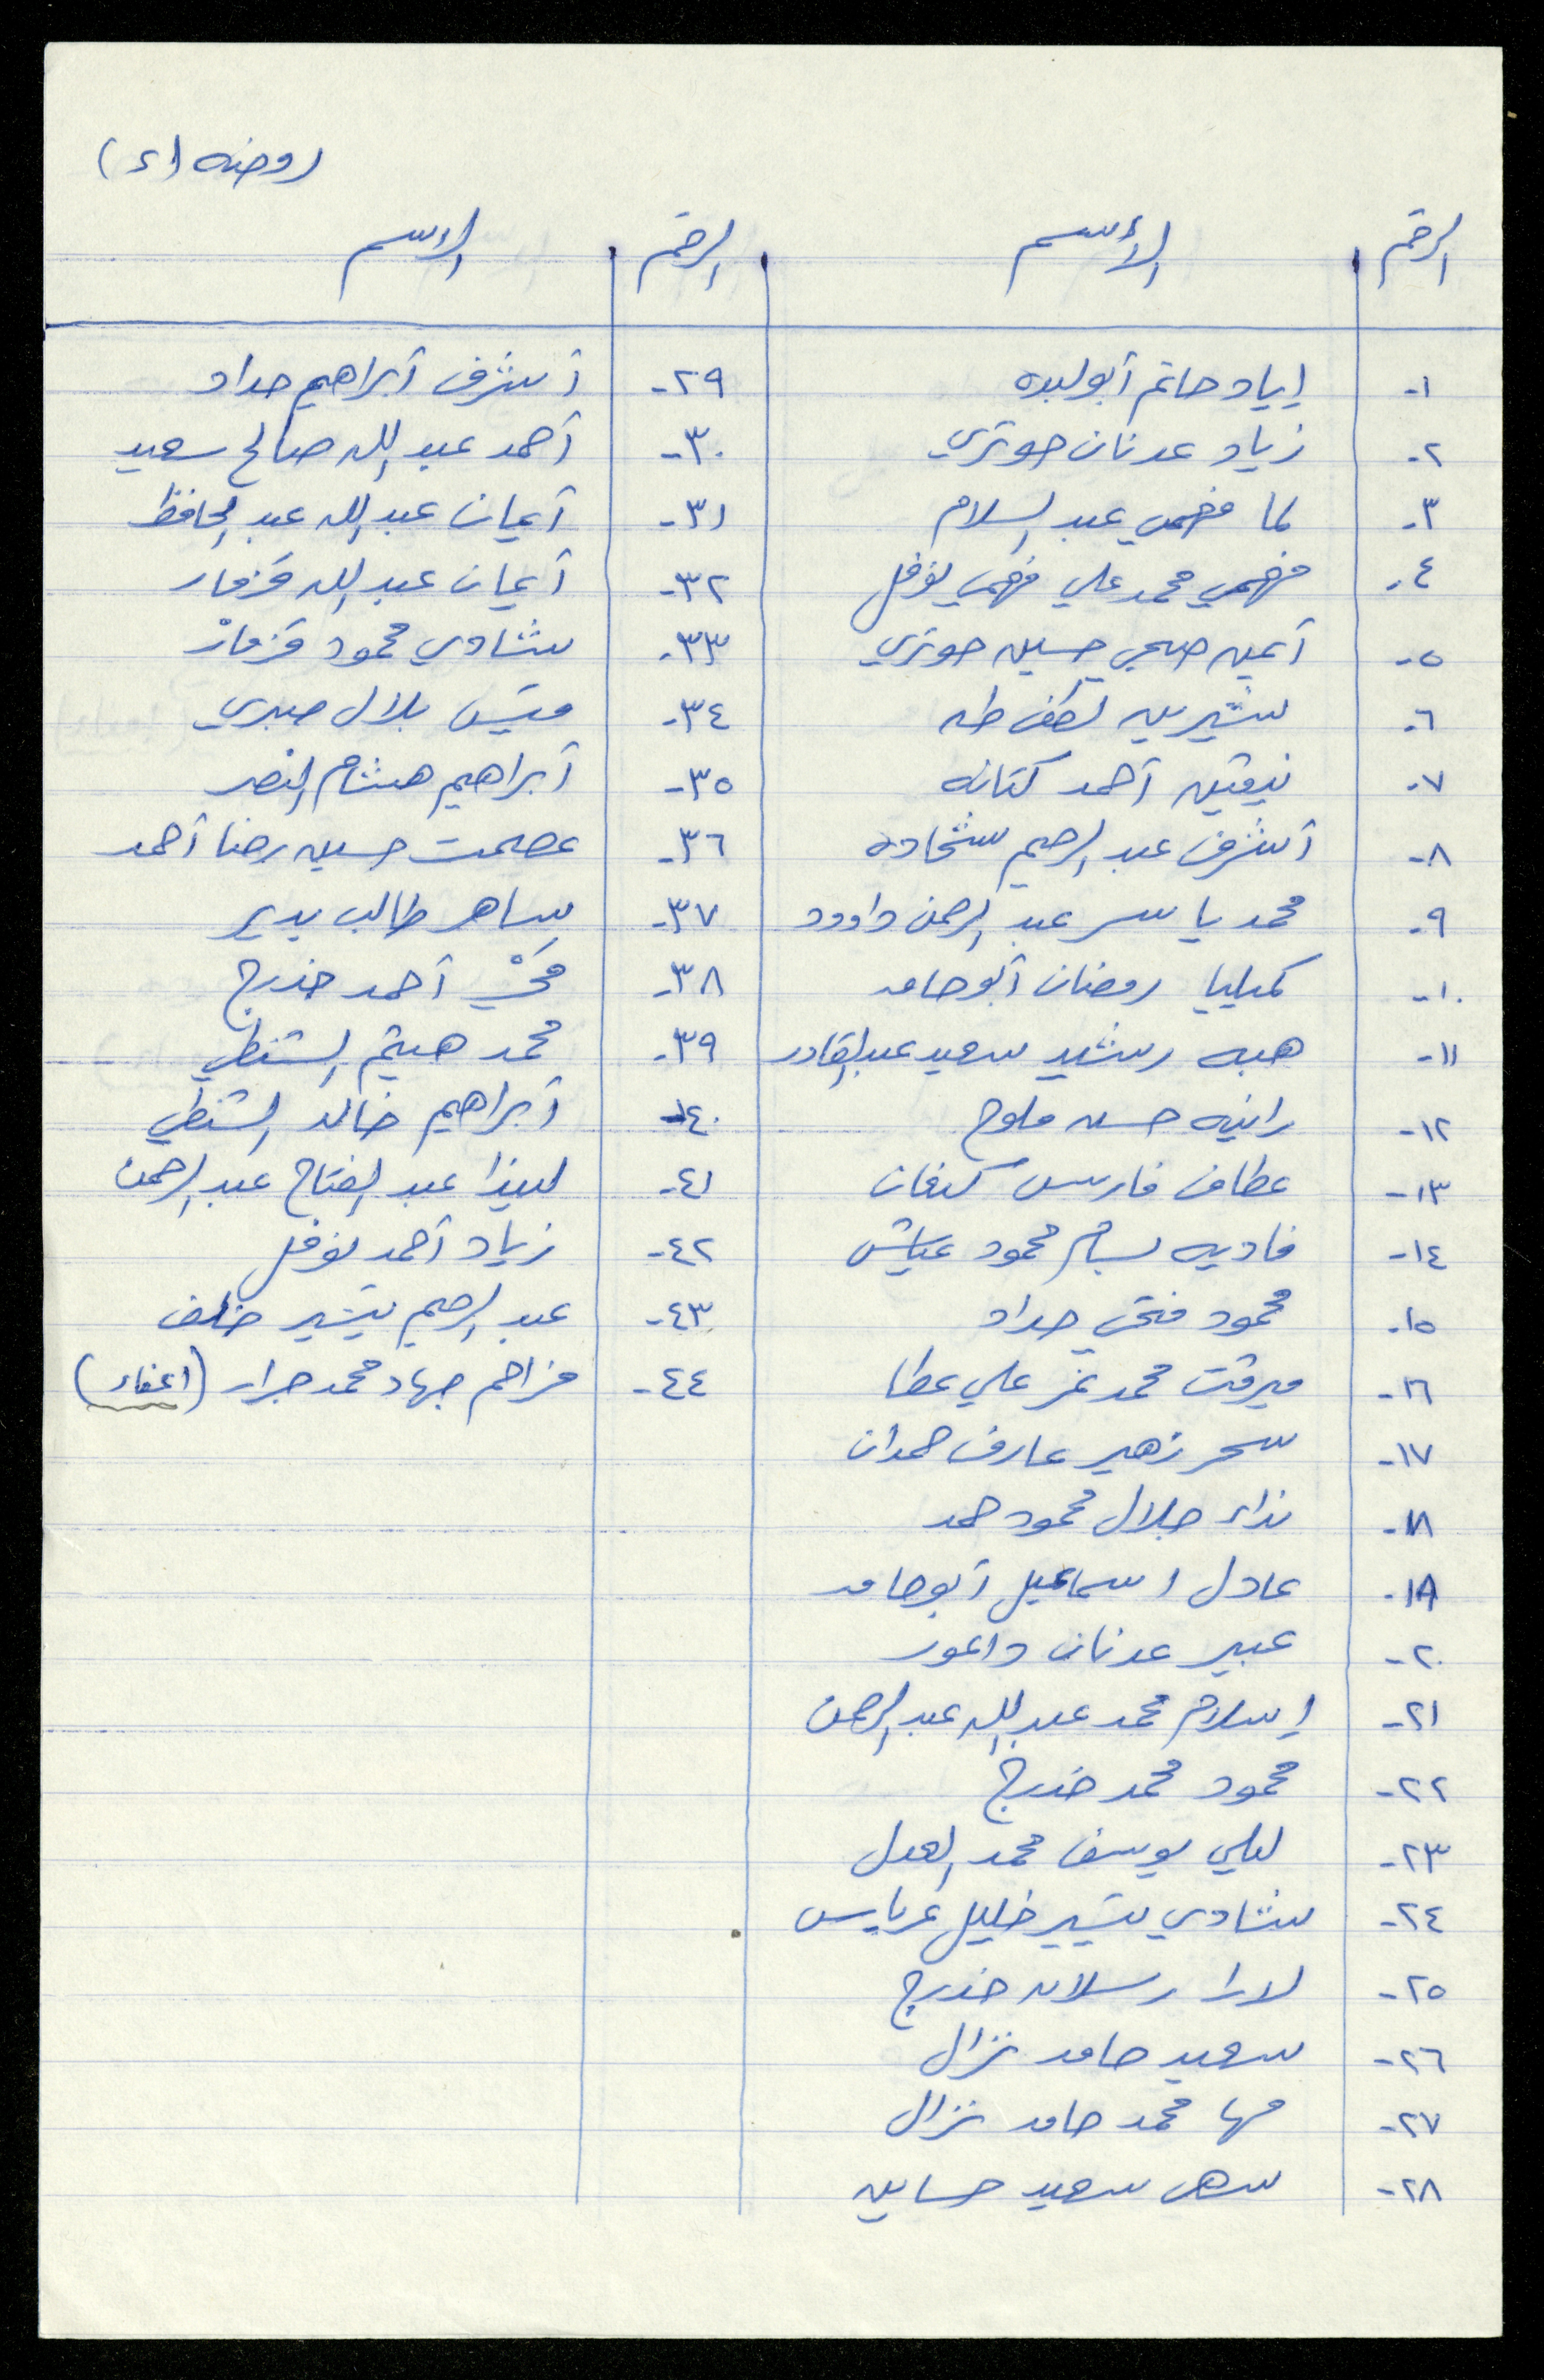 روضه (٢)
الرقم الأسم الرقم الاسم
١- إياد حاتم أبولبده
٢- زياد عدنان حوتري
٣- لما فهمي عبد السلام
٤- فهمي محمد علي فهمي نوفل
٥- أيمن صبحي حسين حوتري
٦- شيرين لطفي طه
٧- نيفين أحمد كتانه
٨- أشرف عبد الرحيم شحاده
٩- محمد ياسر عبد الرحمن داوود
١٠- كميليا رمضان أبوحامد
١١- هبه رشيد سعيد عبدالقادر
١٢- رانيه حسن ملوح
١٣- عطاف فارس كنفان
١٤- فاديه بسام محمود عياش
١٥- محمود فتحي حداد
١٦- ميرفت محمد نمر علي عطا
١٧- سحر زهير عارف حمدان
١٨- نداء جلال محمود حمد
١٩- عادل اسماعيل أبوحامد
٢٠- عبير عدنان داعور
٢١- إسلام محمد عبدالله عبدالرحمن
٢٢- محمود محمد خدرج
٢٣- ليلي يوسف محمد العدل
٢٤- شادي تيسير خليل عرباس
٢٥- لارا رسلان خدرج
٢٦- سعيد حامد نزال
٢٧- مها محمد حامد نزال
٢٨- سهى سعيد حساين
٢٩- أشرف أبراهيم حداد
٣٠- أحمد عبد الله صالح سعيد
٣١- أيمان عبد الله عبد الحافظ
٣٢- أيمان عبد الله قزمار
٣٣- شادي محمود قزمار
٣٤- قيس بلال صبري
٣٥- أبراهيم هشام النصر
٣٦- عصمت حسين رضا أحمد
٣٧- ساهر طالب بدير
٣٨- أحمد خدرج
٣٩- محمد هيثم الشنطي
٤٠- أبراهيم خالد الشنطي
٤١- ليندا عبد الفتاح عبد الرحمن
٤٢- زياد أحمد نوفل
٤٣- عبد الرحيم تيسير خلف
٤٤- مزاحم جهاد محمد جرار (اعفاء)